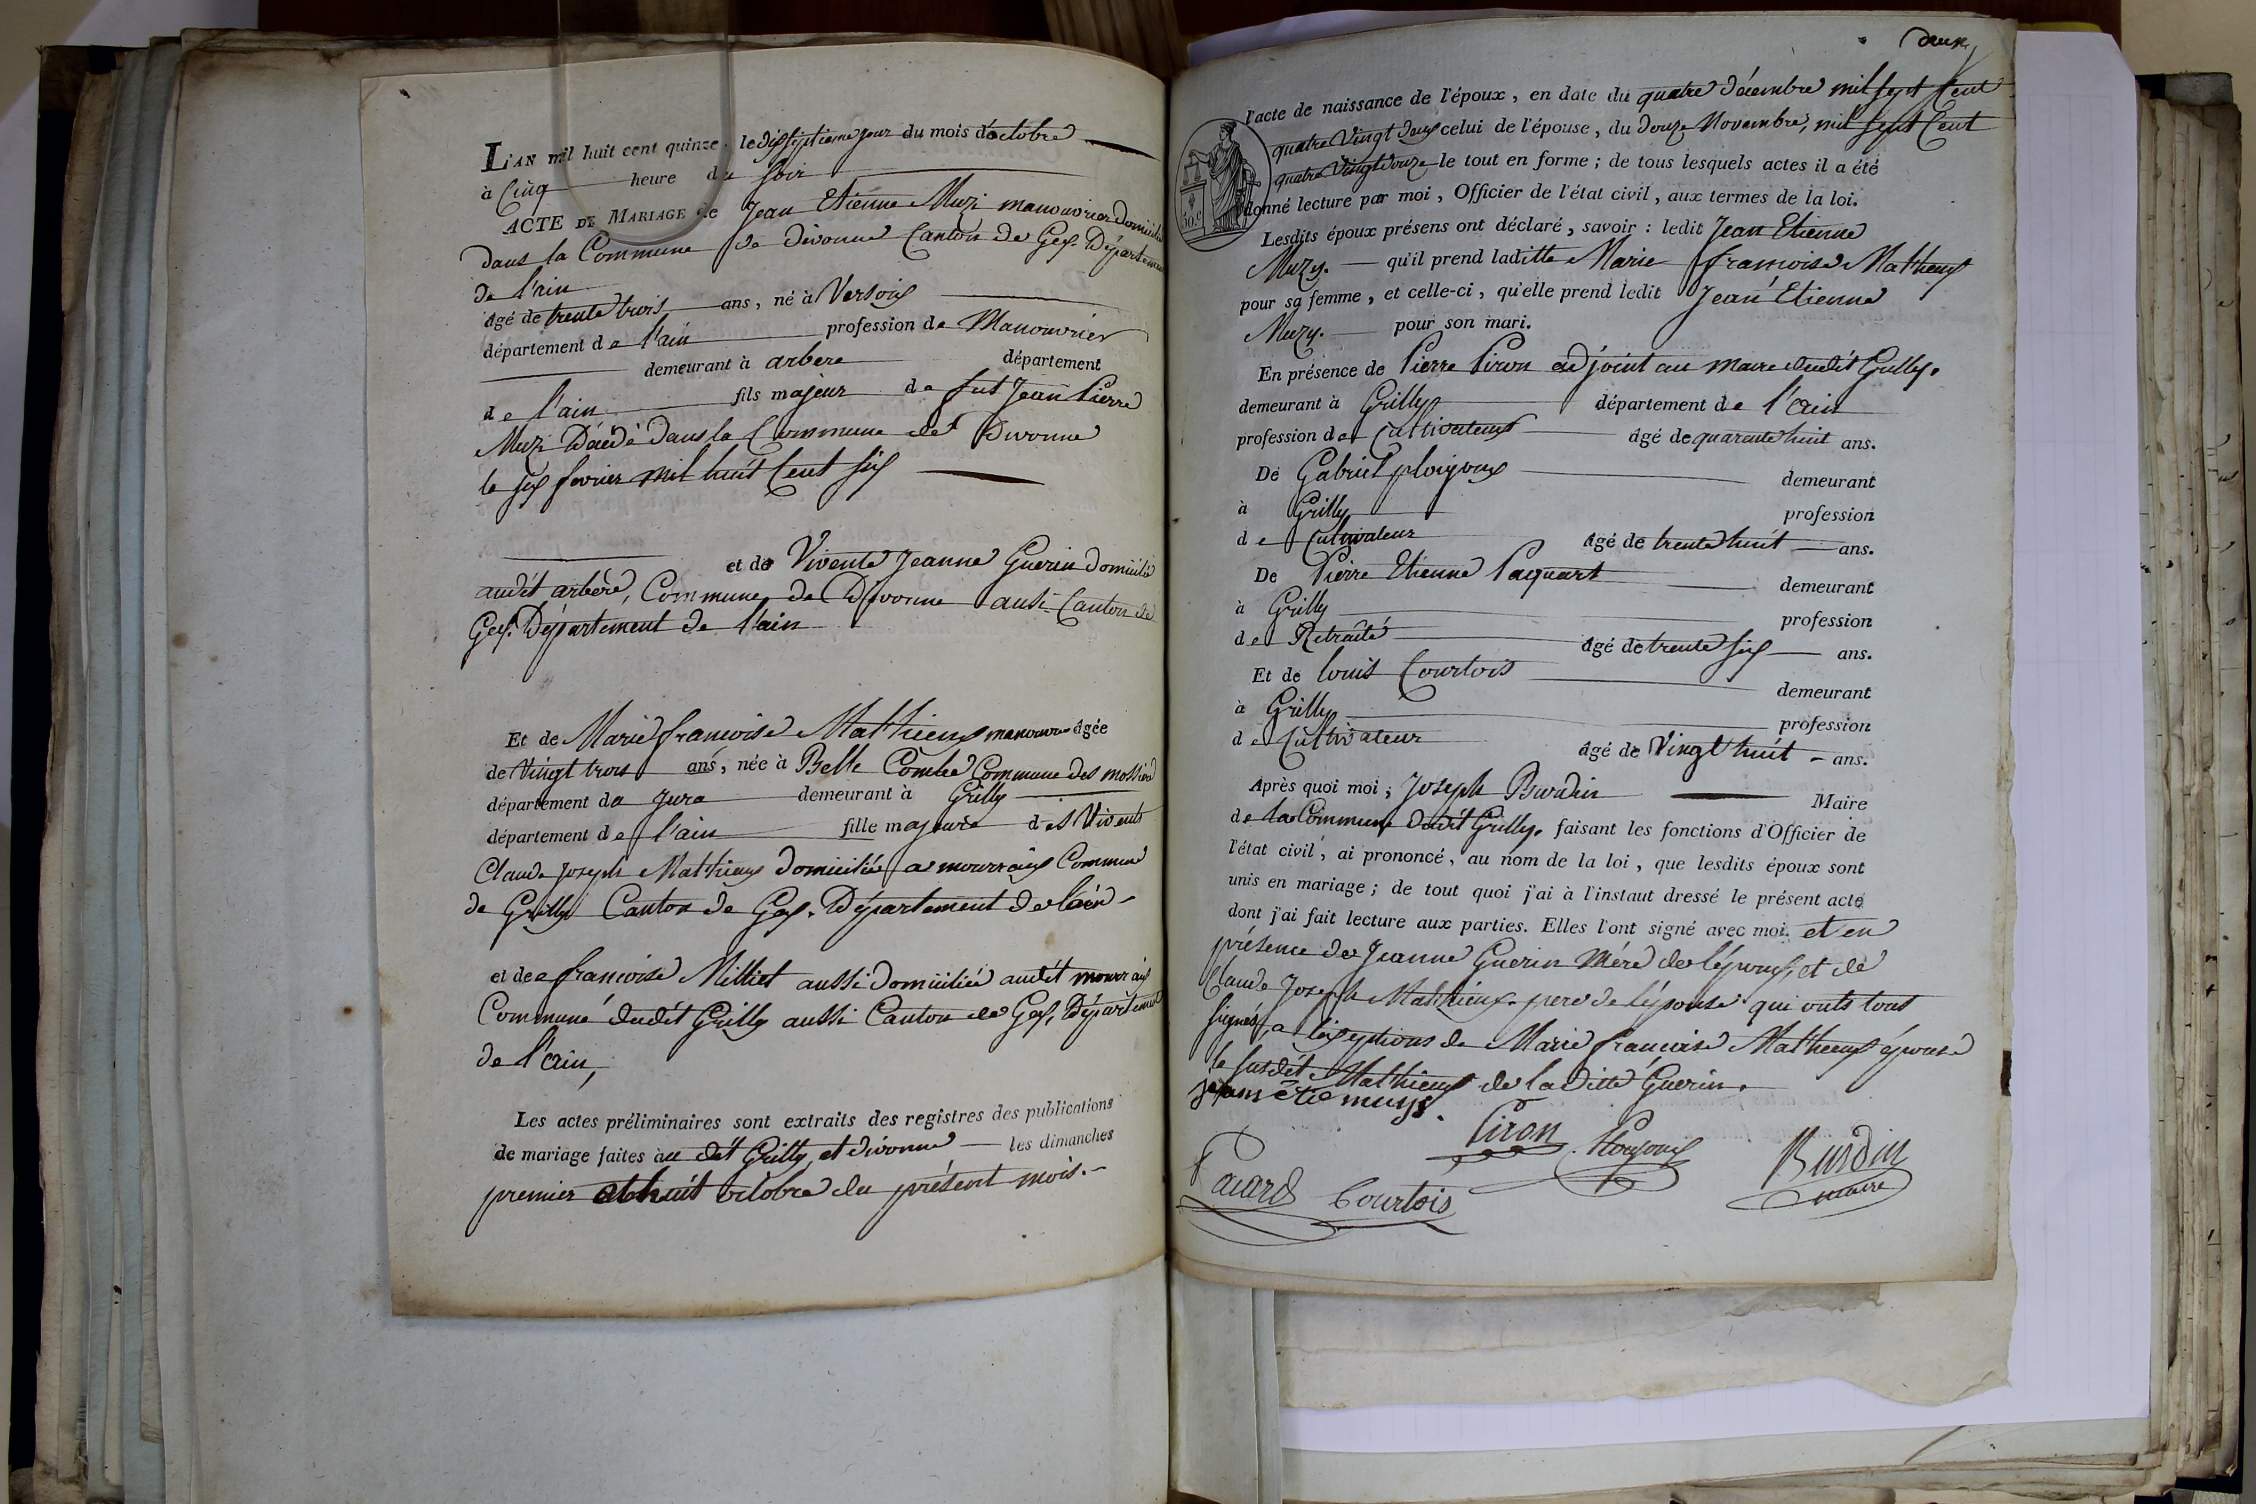 L'AN mil huit cent quinze, le dixseptieme jour du mois d'octobre
à Cinq heure du soir
ACTE DE MARIAGE de Jean Etienne Muzi manouvrier domicilié
dans la Commune de divonne Canton de Gex. Département
de l'ain
âgé de trente trois ans, né à Versoix
département de l'ain profession de Manouvrier
demeurant à arbere département
de l'ain fils majeur de fut Jean Pierre
Muzi Décédé dans la Commune de Divonne
le six fevrier mil huit Cent six
et de Vivente Jeanne Guerin domicilié
audit arbere, Commune de Divonne aussi Canton de
Gex. Département de l'ain
Et de Marie francoise Mathieux manouvre âgée
de Vingt trois ans, née à Belle Combe Commune des
département du Jura demeurant à Grilly
département de l'ain fille majeure des Vivents
Claude Joseph Mathieux domiciliée a mourraix Commune
de Grilly Canton de Gex. Département de l'ain
et de francoise Milliet aussi domiciliée audit mourraix
Commune dudit Grilly aussi Canton de Gex, Département
de l'ain,
Les actes préliminaires sont extraits des registres des publications
de mariage faites au dit Grilly et divonne les dimanches
premier et huit octobre du présent mois.
deux
l'acte de naissance de l'époux, en date du quatre décembre mil sept Cent
quatre Vingt deux celui de l'épouse, du douze Novembre, mil sept Cent
quatre Vingt douze le tout en forme; de tous lesquels actes il a été
donné lecture par moi, Officier de l'état civil, aux termes de la loi.
50.c
Lesdits époux présens ont déclaré, savoir: ledit Jean Etienne
Muzy. qu'il prend laditte Marie francoise Matheux
pour sa femme, et celle-ci, qu'elle prend ledit Jean Etienne
Muzy. pour son mari.
En présence de Pierre Piron adjoint au maire dudit Grilly.
demeurant à Grilly département de l'ain
profession de Cultivateur âgé de quarente huit ans.
De Gabriel ploijoux demeurant
à Grilly profession
de Cultivateur âgé de trente huit ans.
De Pierre Etienne Paquart demeurant
à Grilly profession
de Retraité âgé de trente six ans.
Et de louis Courtois demeurant
à Grilly profession
de Cultivateur âgé de Vingt huit ans.
Après quoi moi, Joseph Burdin Maire
de la Commune dudit Grilly. faisant les fonctions d'Officier de
l'état civil, ai prononcé, au nom de la loi, que lesdits époux sont
unis en mariage; de tout quoi j'ai à l'instaut dressé le présent acte
dont j'ai fait lecture aux parties. Elles l'ont signé avec moi. et en
présence de Jeanne Guerin Mére de l'époux, et de
Claude Joseph Mathieux pere de l'épouse qui onts tous
signés, a l'exeptions de Marie francoise Matheux épouse
le susdit Mathieux de la ditte Guerin.
jean étie muys.
Piron Ploujoux Burdin
maire
Pacard Courtois